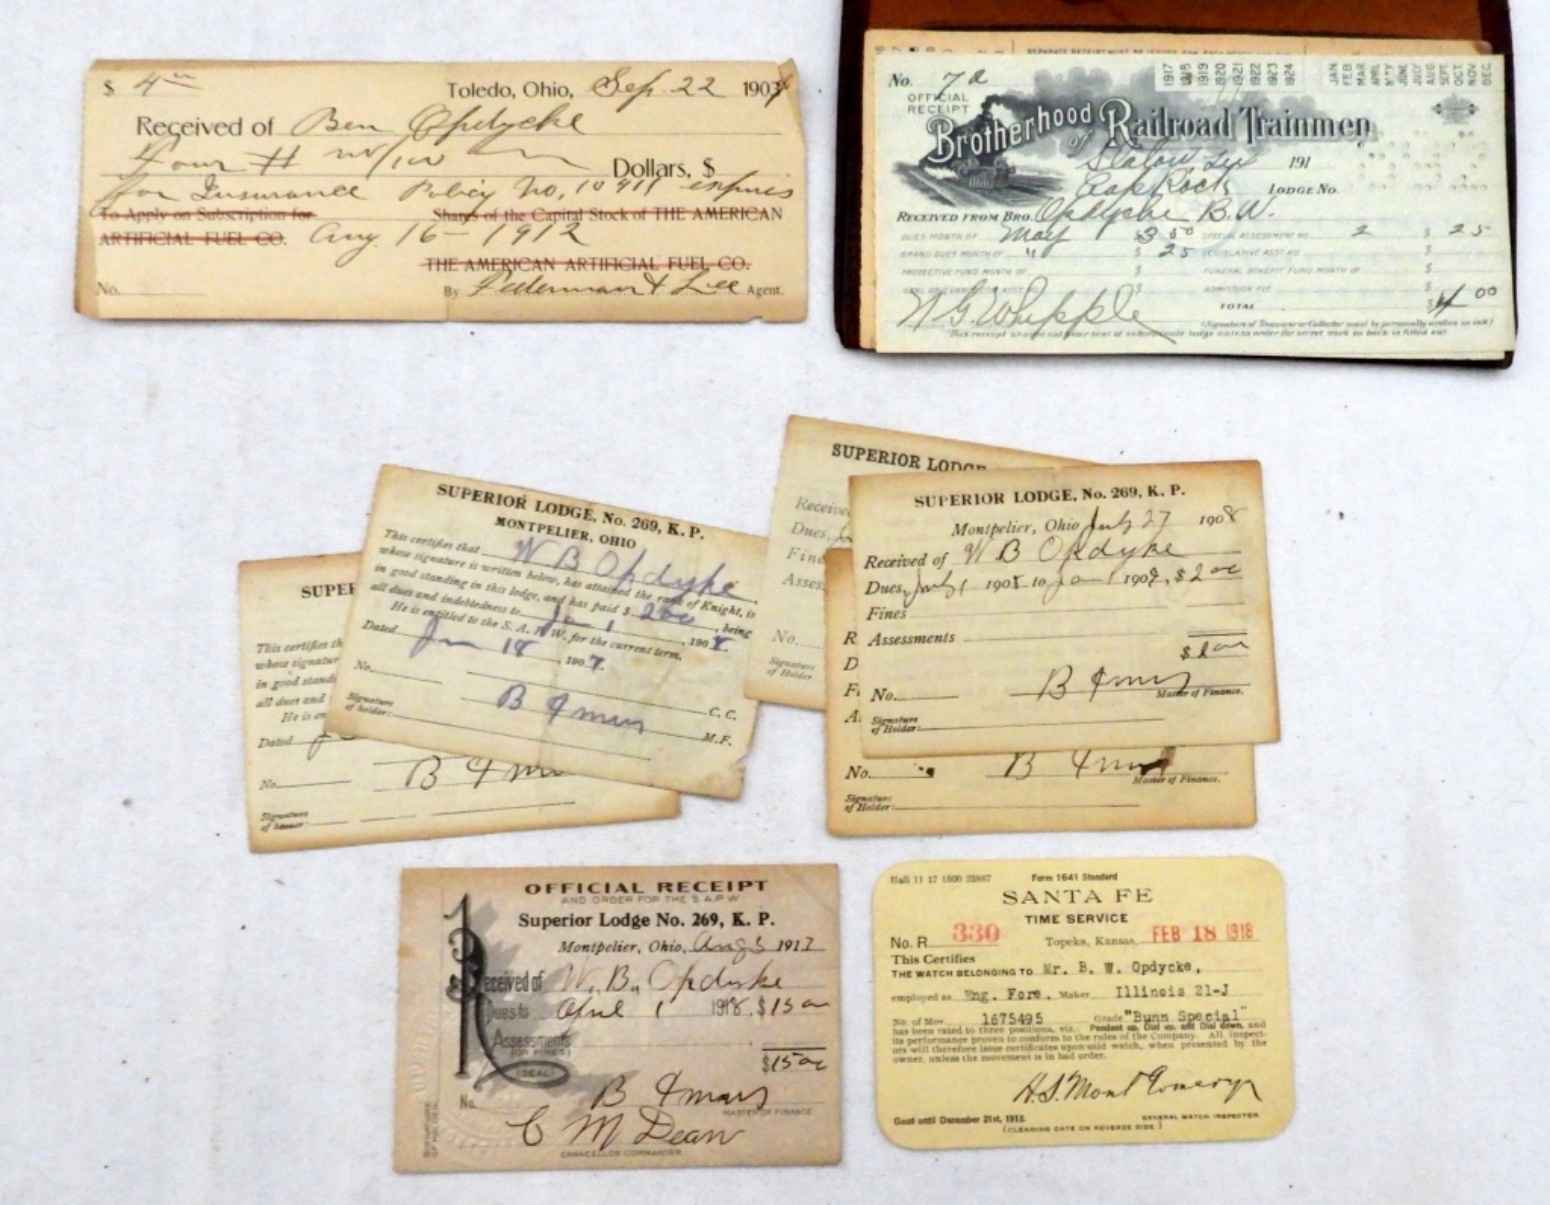 $ 4
Toledo, Ohio, Sep. 22 190
Received of Ben Opdycke
Four # no/100 Dollars, $
for Insurance Policy No, 10911 expires
To Apply on Subscription for Shares of the Capital Stock of THE AMERICAN
ARTIFICIAL FUEL CO. Aug. 16 - 1912
THE AMERICAN ARTIFICIAL FUEL CO.
No. By Peterman & Lee Agent.
No. 7a
1917 1918 1919 1920 1921 1922 1923 1924
JAN FEB. MAR APRIL MAY JUNE JULY AUG. SEPT OCT. NOV. DEC.
OFFICIAL
RECEIPT
Brotherhood of Railroad Trainmen
191
Cap Rock LODGE NO.
RECEIVED FROM BRO. Opdycke B.W.
DUES MONTH OF May $3 50 SPECIAL ASSESSMENT NO. 2 $ 25
GRAND DUES MONTH OF " $ 25 LEGISLATIVE ASST NO. $
PROTECTIVE FUND MONTH OF $ FUNERAL BENEFIT FUND MONTH OF $
$ ADMISSION FEE $
TOTAL $4 00
N G. Whipple
(Signature of Treasurer or Collector must be personally written in ink)
SUPER
This certifies th
whose signatur
in good standi
all dues and
He is en
Dated
No.
B F Mar
Signature
of
SUPERIOR LODGE, No. 269, K. P.
MONTPELIER, OHIO
This certifies that W B Opdyke
whose signature is written below, has attained the rank of Knight, is
in good standing in this lodge, and has paid $ 200, being
all dues and indebtedness to Jan 1, 190
He is entitled to the S. A. P. W. for the current term.
Dated Jan 18, 1907.
No.
C. C.
B F Mars
M. F.
Signature
of holder:
SUPERIOR LODGE
Received
Dues,
Fine
Asses
No.
Signature
of Holder
SUPERIOR LODGE, No. 269, K. P.
Montpelier, Ohio July 27 1908
Received of W B Opdyke
Dues, July 1 1908 to Jan 1 1909, $2 00
Fines
Assessments
No. B F Mars
Master of Finance.
Signature
of Holder:
R
D
F
A
No. B F Mars
Master of Finance.
Signature
of Holder:
OFFICIAL RECEIPT
AND ORDER FOR THE S.A.P.W
Superior Lodge No. 269, K. P.
Montpelier, Ohio, Aug 3 1917
Received of W. B. Opdyke
Dues to April 1 1918. $15 00
Assessments
(OR FINES)
$15 00
(SEAL)
No. B F Mars
MASTER OF FINANCE
C M Dean
CHANCELLOR COMMANDER
SIGNATURE
OF HOLDER
Hall 11 17 1500 23887 Form 1641 Standard
SANTA FE
TIME SERVICE
No. R 330 Topeka, Kansas, FEB 18 1918
This Certifies
THE WATCH BELONGING TO Mr. B. W. Opdycke,
employed as Eng. Fore. Maker Illinois 21-J
No. of Mov. 1675495 Grade "Bunn Special"
has been rated to three positions, viz. Pendant up, Dial up, and Dial down, and
its performance proven to conform to the rules of the Company. All inspect-
ors will therefore issue certificates upon said watch, when presented by the
owner, unless the movement is in bad order.
H.S. Montgomery
GENERAL WATCH INSPECTOR
Good until December 31st, 1918.
(CLEANING DATE ON REVERSE SIDE.)